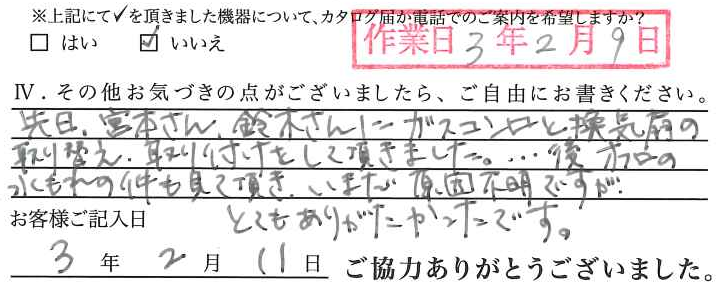 ※上記にて✓を頂きました機器について、カタログ届か電話でのご案内を希望しますか？
□ はい ☑ いいえ
作業日 3年2月9日
Ⅳ．その他お気づきの点がございましたら、ご自由にお書きください。
先日、宮本さん、鈴木さんにガスコンロと換気扇の
取り替え、取り付けをして頂きました。…後オフロの
水もれの件も見て頂き、いまだ原因不明ですが、
とてもありがたかったです。
お客様ご記入日
3年2月11日 ご協力ありがとうございました。